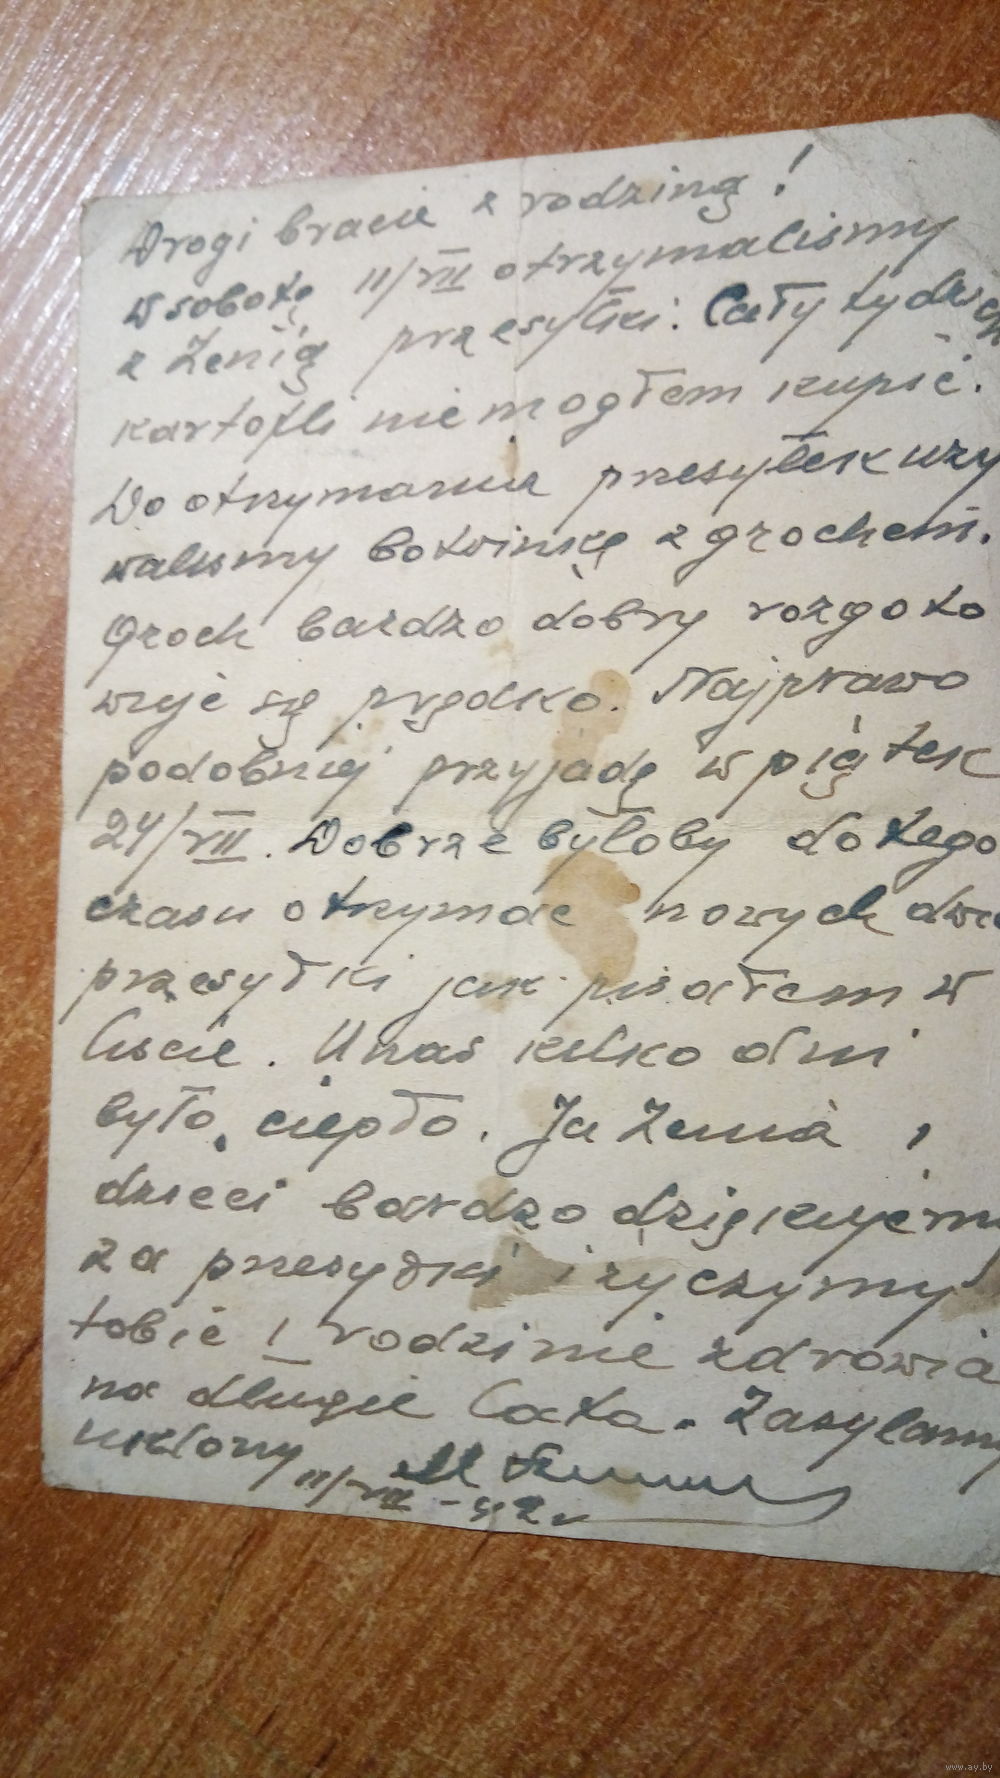 Drogi bracie z rodziną!
W sobotę 11/VII otrzymaliśmy
z Żenią przesyłki. Cały tydzień
kartofli nie mogłem kupić.
Do otrzymania przesyłek uży
waliśmy botwinkę z grochem.
Groch bardzo dobry rozgoto
wuje się prędko. Najprawo
podobniej przyjadę w piątek
24/VII. Dobrze byłoby do tego
czasu otrzymać nowych dwie
przesyłki jak pisałem w
liście. U nas kilka dni
było ciepło. Ja Żenia,
dzieci bardzo dziękujemy
za przesyłki i życzymy
tobie i rodzinie zdrowia
na długie lata. Zasyłamy
ukłony
11/VII - 42 r
www.ay.by